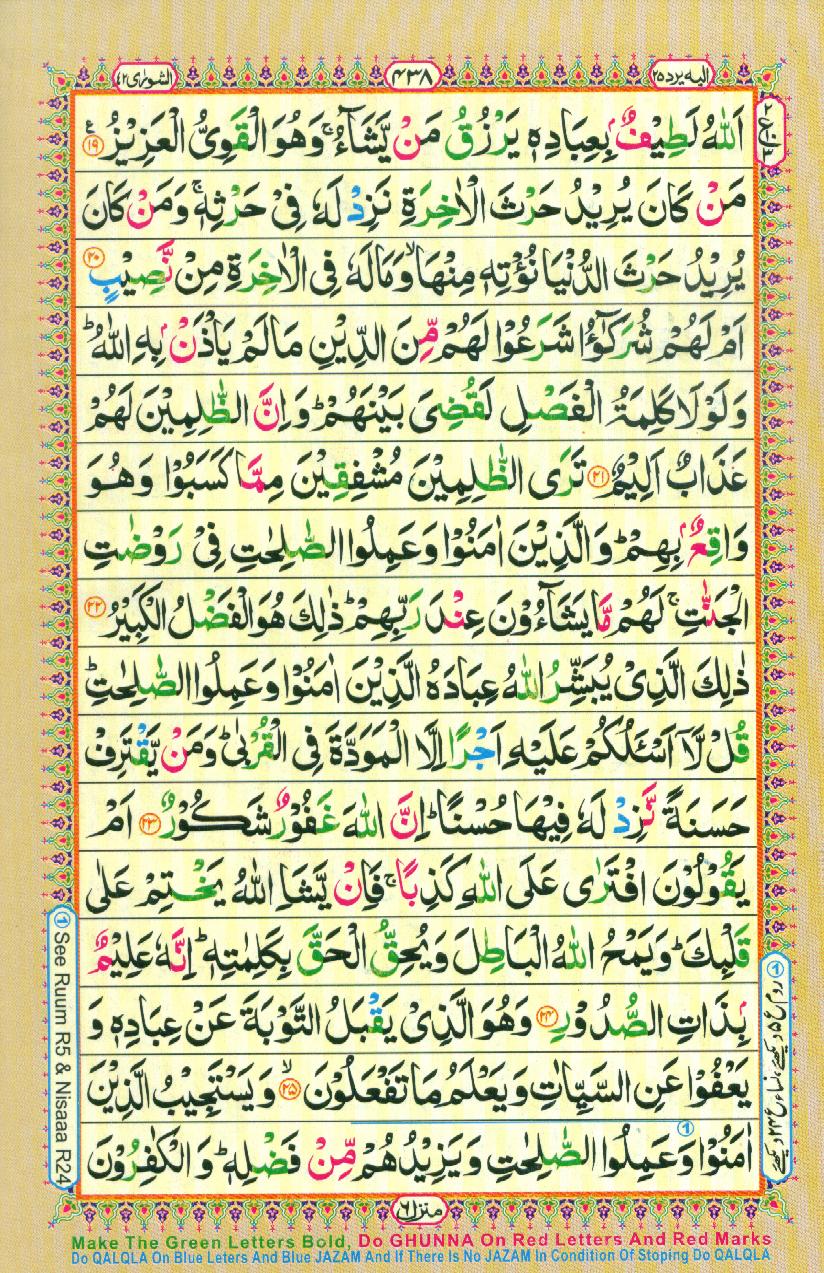 الیه یرد ۲۵
۴۳۸
الشورٰی ۴۲
اَللّٰهُ لَطِیْفٌۢ بِعِبَادِهٖ یَرْزُقُ مَنْ یَّشَآءُ ۚ وَهُوَ الْقَوِیُّ الْعَزِیْزُ ۧ ۱۹
مَنْ كَانَ یُرِیْدُ حَرْثَ الْاٰخِرَةِ نَزِدْ لَهٗ فِیْ حَرْثِهٖ ۚ وَمَنْ كَانَ
یُرِیْدُ حَرْثَ الدُّنْیَا نُؤْتِهٖ مِنْهَا ۙ وَمَا لَهٗ فِی الْاٰخِرَةِ مِنْ نَّصِیْبٍ ۲۰
اَمْ لَهُمْ شُرَكٰٓؤُا شَرَعُوْا لَهُمْ مِّنَ الدِّیْنِ مَا لَمْ یَاْذَنْۢ بِهِ اللّٰهُ ؕ
وَلَوْلَا كَلِمَةُ الْفَصْلِ لَقُضِیَ بَیْنَهُمْ ؕ وَاِنَّ الظّٰلِمِیْنَ لَهُمْ
عَذَابٌ اَلِیْمٌ ۲۱ تَرَی الظّٰلِمِیْنَ مُشْفِقِیْنَ مِمَّا كَسَبُوْا وَهُوَ
وَاقِعٌۢ بِهِمْ ؕ وَالَّذِیْنَ اٰمَنُوْا وَعَمِلُوا الصّٰلِحٰتِ فِیْ رَوْضٰتِ
الْجَنّٰتِ ۚ لَهُمْ مَّا یَشَآءُوْنَ عِنْدَ رَبِّهِمْ ؕ ذٰلِكَ هُوَ الْفَضْلُ الْكَبِیْرُ ۲۲
ذٰلِكَ الَّذِیْ یُبَشِّرُ اللّٰهُ عِبَادَهُ الَّذِیْنَ اٰمَنُوْا وَعَمِلُوا الصّٰلِحٰتِ ؕ
قُلْ لَّاۤ اَسْئَلُكُمْ عَلَیْهِ اَجْرًا اِلَّا الْمَوَدَّةَ فِی الْقُرْبٰی ؕ وَمَنْ یَّقْتَرِفْ
حَسَنَةً نَّزِدْ لَهٗ فِیْهَا حُسْنًا ؕ اِنَّ اللّٰهَ غَفُوْرٌ شَكُوْرٌ ۲۳ اَمْ
یَقُوْلُوْنَ افْتَرٰی عَلَی اللّٰهِ كَذِبًا ۚ فَاِنْ یَّشَاِ اللّٰهُ یَخْتِمْ عَلٰی
قَلْبِكَ ؕ وَیَمْحُ اللّٰهُ الْبَاطِلَ وَیُحِقُّ الْحَقَّ بِكَلِمٰتِهٖ ؕ اِنَّهٗ عَلِیْمٌۢ
بِذَاتِ الصُّدُوْرِ ۲۴ وَهُوَ الَّذِیْ یَقْبَلُ التَّوْبَةَ عَنْ عِبَادِهٖ وَ
یَعْفُوْا عَنِ السَّیِّاٰتِ وَیَعْلَمُ مَا تَفْعَلُوْنَ ۙ ۲۵ وَیَسْتَجِیْبُ الَّذِیْنَ
اٰمَنُوْا وَعَمِلُوا الصّٰلِحٰتِ وَیَزِیْدُهُمْ مِّنْ فَضْلِهٖ ؕ وَالْكٰفِرُوْنَ
① See Ruum R5 & Nisaaa R24
منزل ٦
Make The Green Letters Bold, Do GHUNNA On Red Letters And Red Marks
Do QALQLA On Blue Leters And Blue JAZAM And If There Is No JAZAM In Condition Of Stoping Do QALQLA